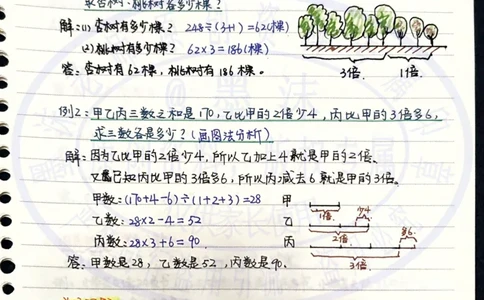 求杏树、桃树各多少棵？
解:(1) 杏树有多少棵？ 248÷(3+1)=62(棵)
(2)桃树有多少棵？ 62×3=186(棵)
答：杏树有62棵，桃树有186棵。
3倍. 1倍.
例2：甲乙丙三数之和是170，乙比甲的2倍少4，丙比甲的3倍多6，
求三数各是多少？(画图法分析)
解：因为乙比甲的2倍少4，所以乙加上4就是甲的2倍、
又已知丙比甲的3倍多6，所以丙减去6就是甲的3倍。
甲数:(170+4-6)÷(1+2+3)=28 甲
1倍. 少4
乙数:28×2-4=52 乙
2倍.
丙数:28×3+6=90. 丙 多6.
3倍.
答：甲数是28，乙数是52，丙数是90。